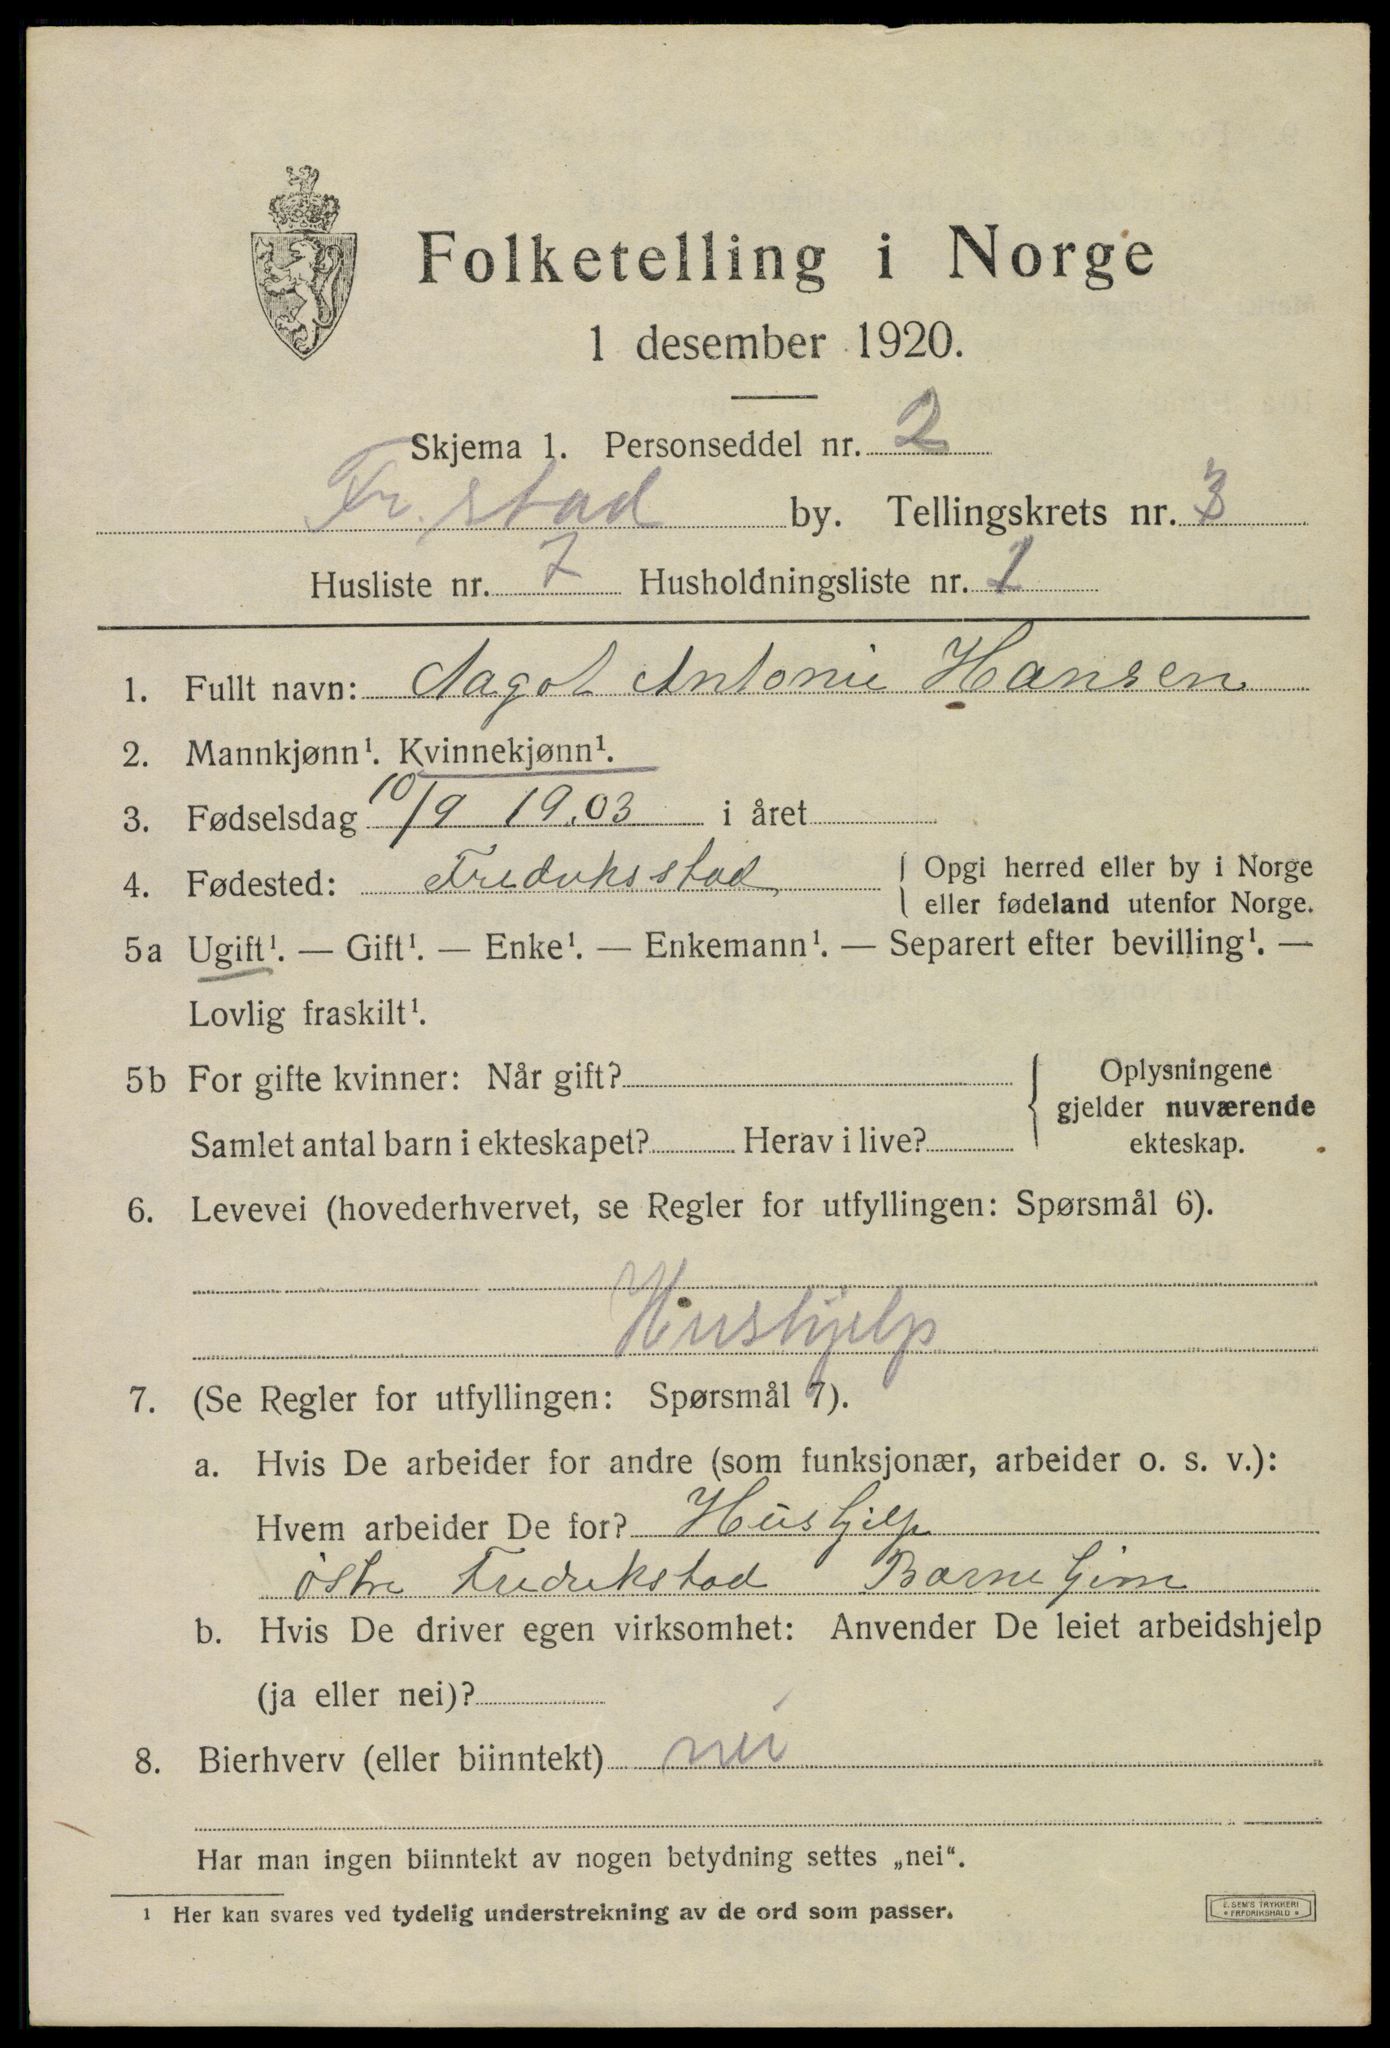 Folketelling i Norge
1 desember 1920.
Skjema 1. Personseddel nr. 2
Fr.stad by. Tellingskrets nr. 3
Husliste nr. 7 Husholdningsliste nr. 1
1. Fullt navn: Aagot Antonie Hansen
2. Mannkjønn¹. Kvinnekjønn¹.
3. Fødselsdag 10/9 19.03 i året
4. Fødested: Fredriksstad { Opgi herred eller by i Norge
eller fødeland utenfor Norge.
5a Ugift¹. — Gift¹. — Enke¹. — Enkemann¹. — Separert efter bevilling¹. —
Lovlig fraskilt¹.
5b For gifte kvinner: Når gift? { Oplysningene
gjelder nuværende
Samlet antal barn i ekteskapet? Herav i live? ekteskap.
6. Levevei (hovederhvervet, se Regler for utfyllingen: Spørsmål 6).
Hushjelp
7. (Se Regler for utfyllingen: Spørsmål 7).
a. Hvis De arbeider for andre (som funksjonær, arbeider o. s. v.):
Hvem arbeider De for? Hushjelp
østre Fredrikstad Barnehjem
b. Hvis De driver egen virksomhet: Anvender De leiet arbeidshjelp
(ja eller nei)?
8. Bierhverv (eller biinntekt) nei
Har man ingen biinntekt av nogen betydning settes „nei“.
¹ Her kan svares ved tydelig understrekning av de ord som passer.
E. SEM'S TRYKKERI
* FREDRIKSHALD *